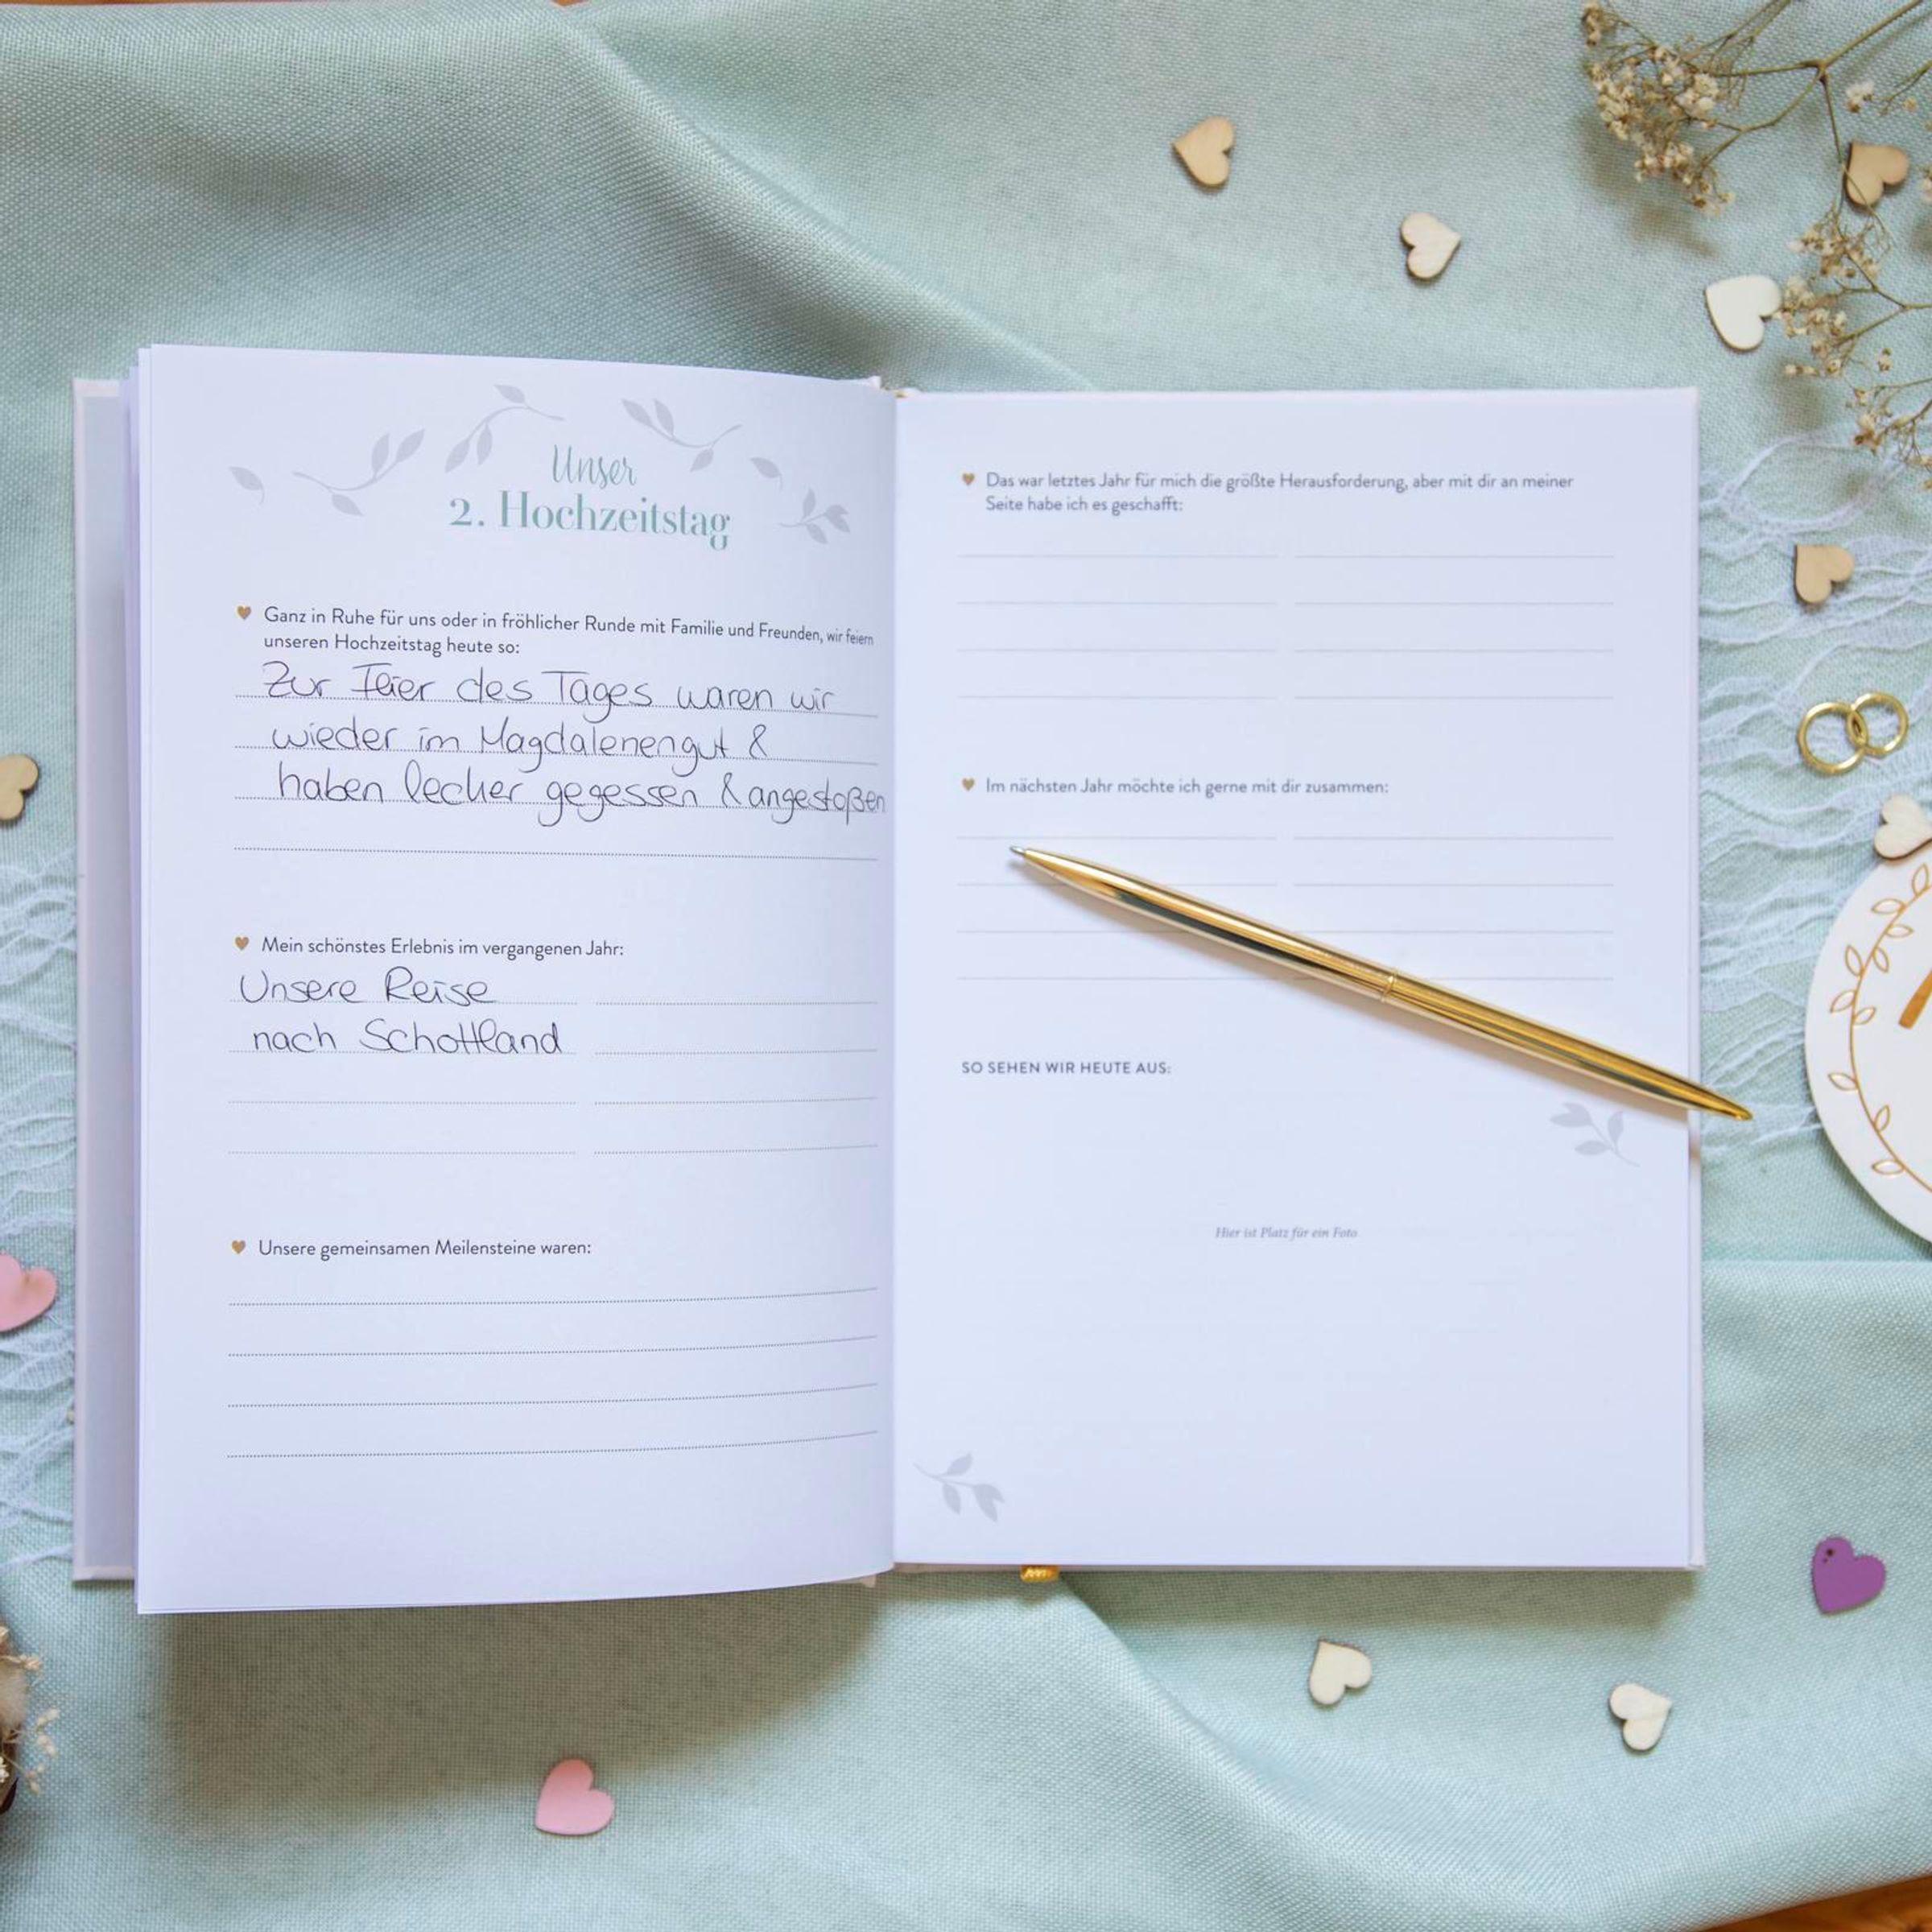 Unser
2. Hochzeitstag
Ganz in Ruhe für uns oder in fröhlicher Runde mit Familie und Freunden, wir feiern
unseren Hochzeitstag heute so:
Zur Feier des Tages waren wir
wieder im Magdalenengut &
haben lecker gegessen & angestoßen
Mein schönstes Erlebnis im vergangenen Jahr:
Unsere Reise
nach Schottland
Unsere gemeinsamen Meilensteine waren:
Das war letztes Jahr für mich die größte Herausforderung, aber mit dir an meiner
Seite habe ich es geschafft:
Im nächsten Jahr möchte ich gerne mit dir zusammen:
SO SEHEN WIR HEUTE AUS:
Hier ist Platz für ein Foto